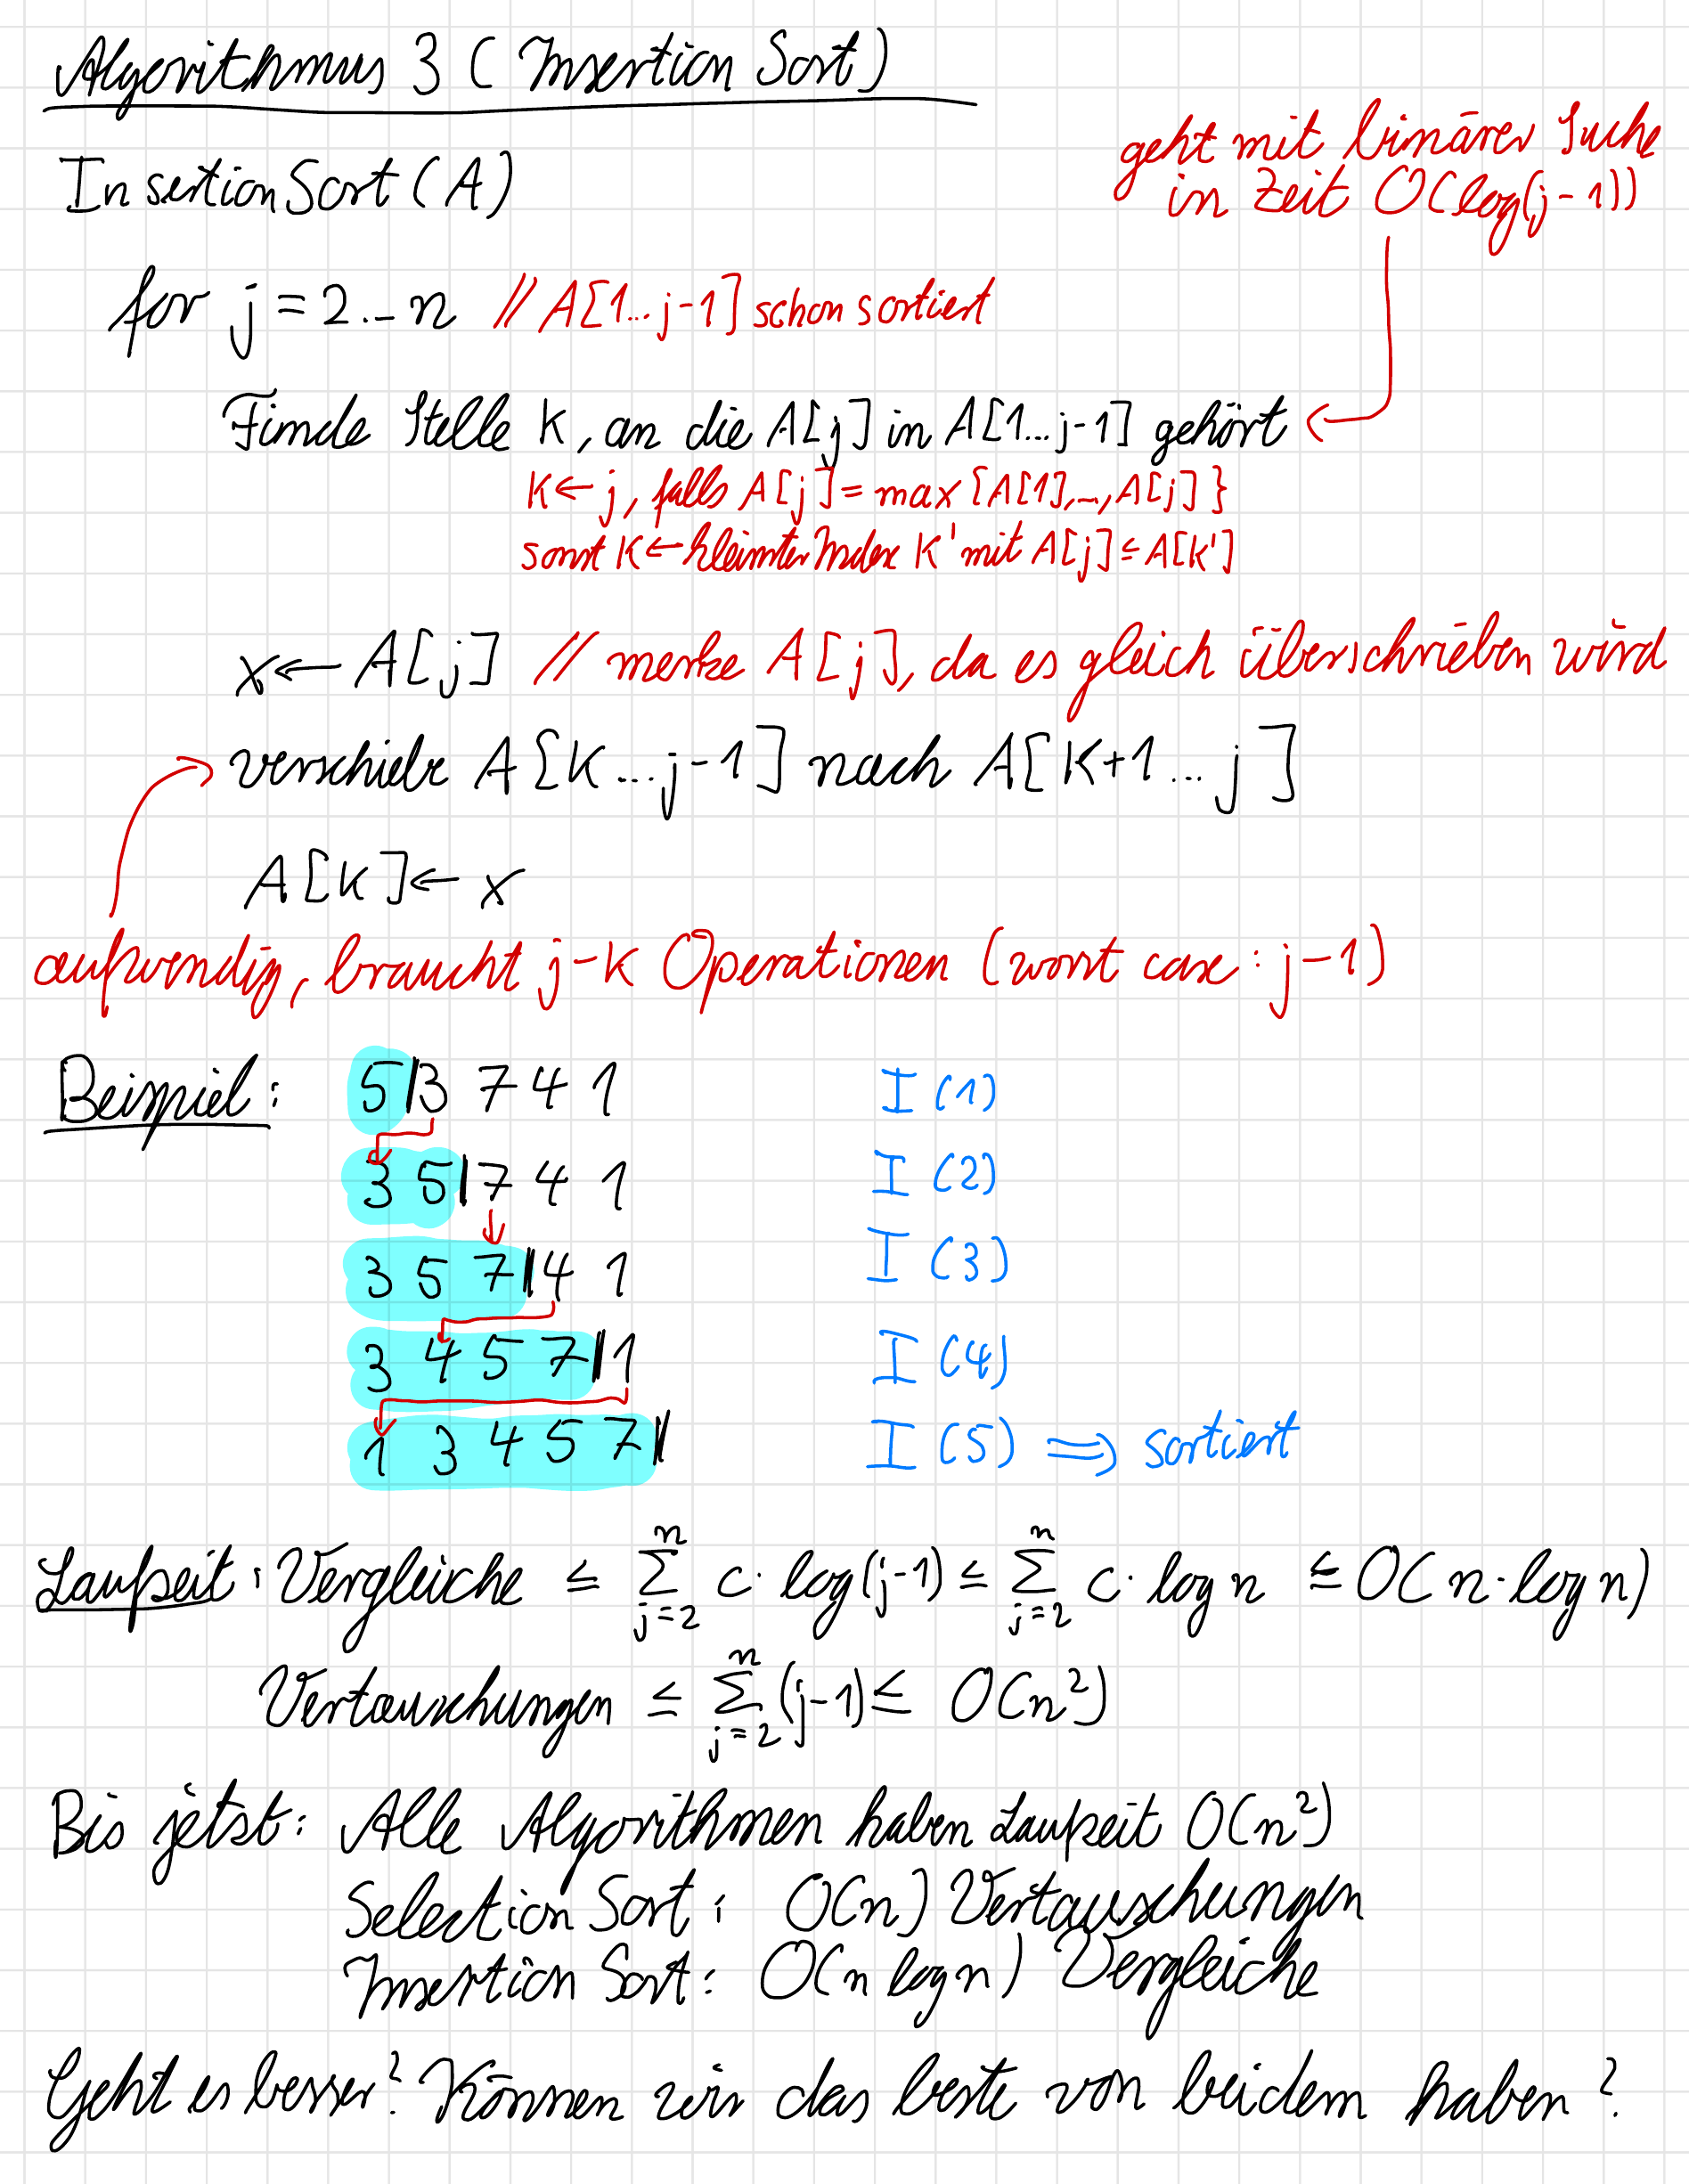 Algorithmus 3 (Insertion Sort)
geht mit binärer Suche
in Zeit O(log(j-1))
InsertionSort(A)
for j = 2...n // A[1...j-1] schon sortiert
Finde Stelle k, an die A[j] in A[1...j-1] gehört
k ← j, falls A[j] = max{A[1],...,A[j]}
sonst k ← kleinster Index k' mit A[j] ≤ A[k']
x ← A[j] // merke A[j], da es gleich überschrieben wird
verschiebe A[k...j-1] nach A[k+1...j]
A[k] ← x
aufwendig, braucht j-k Operationen (worst case: j-1)
Beispiel: 5|3 7 4 1 I(1)
3 5|7 4 1 I(2)
3 5 7|4 1 I(3)
3 4 5 7|1 I(4)
1 3 4 5 7| I(5) ⇒ sortiert
Laufzeit: Vergleiche ≤ ∑_{j=2}^{n} c · log(j-1) ≤ ∑_{j=2}^{n} c · log n ≤ O(n · log n)
Vertauschungen ≤ ∑_{j=2}^{n} (j-1) ≤ O(n²)
Bis jetzt: Alle Algorithmen haben Laufzeit O(n²)
Selection Sort: O(n) Vertauschungen
Insertion Sort: O(n log n) Vergleiche
Geht es besser? Können wir das beste von beidem haben?